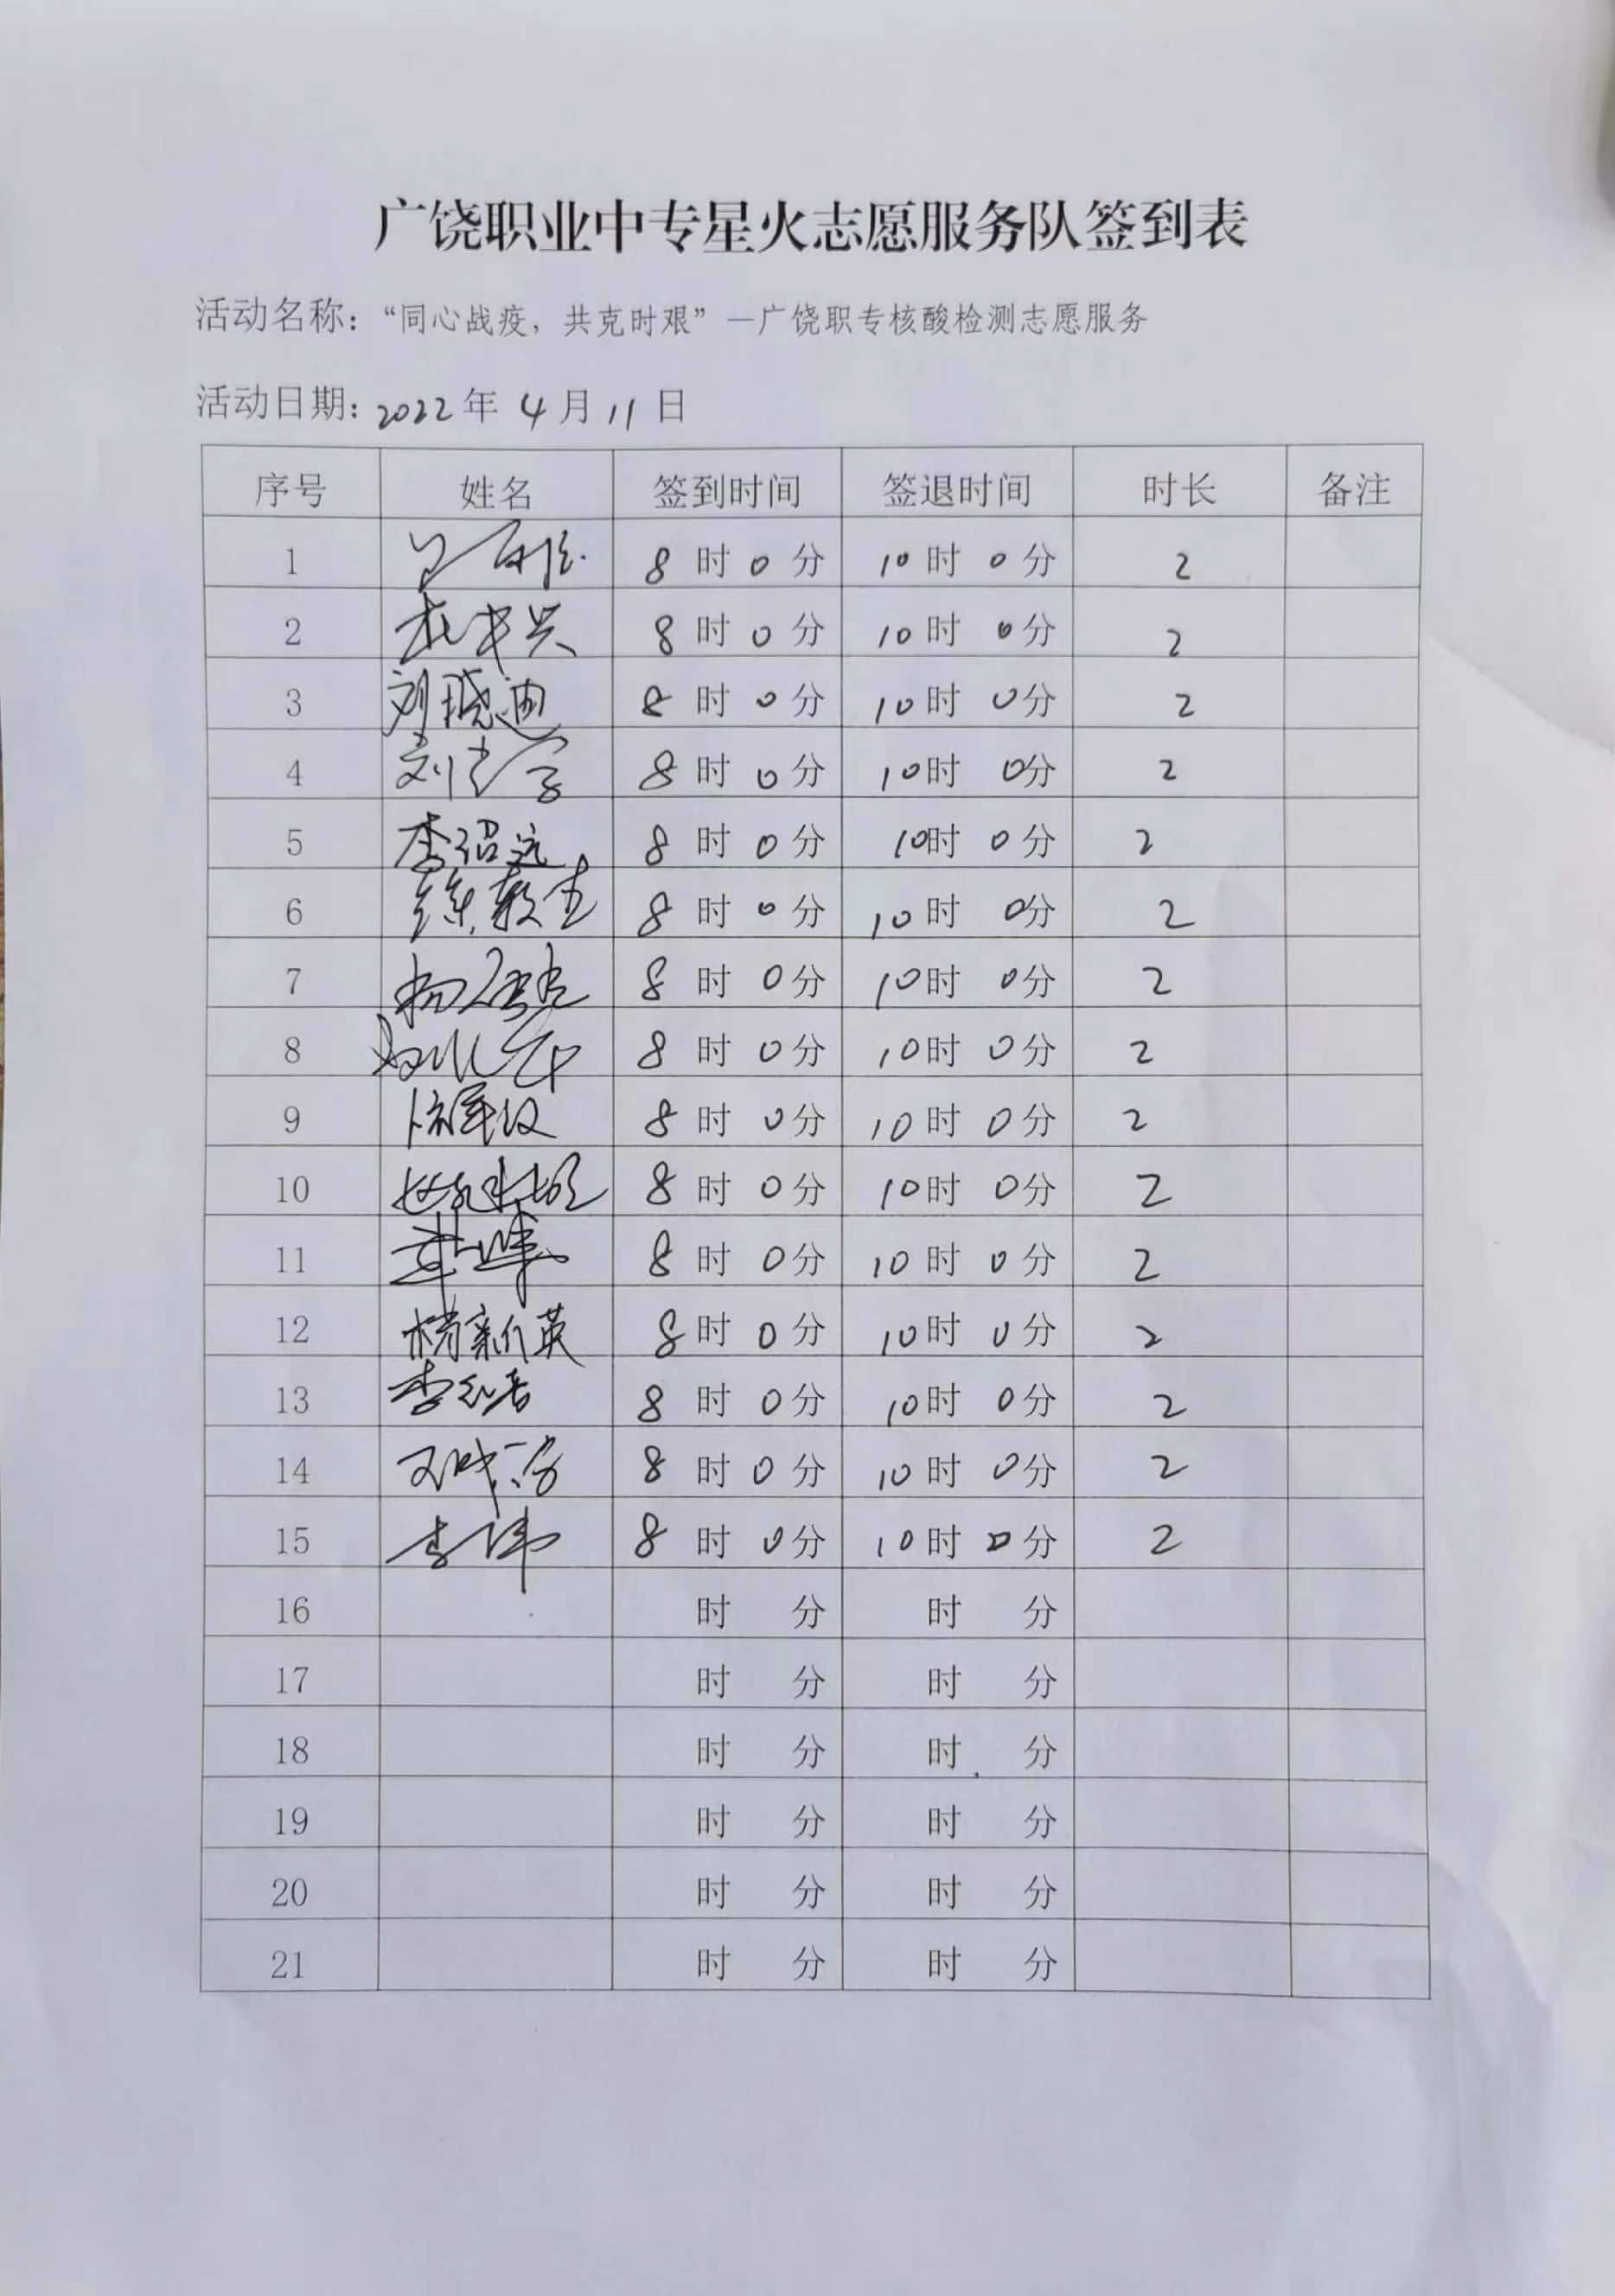 广饶职业中专星火志愿服务队签到表
活动名称：“同心战疫，共克时艰”—广饶职专核酸检测志愿服务
活动日期：2022年 4月 11日
序号 姓名 签到时间 签退时间 时长 备注
1 8时0分 10时0分 2
2 8时0分 10时0分 2
3 刘晓迪 8时0分 10时0分 2
4 刘 8时0分 10时0分 2
5 李绍远 8时0分 10时0分 2
6 8时0分 10时0分 2
7 杨 8时0分 10时0分 2
8 8时0分 10时0分 2
9 8时0分 10时0分 2
10 8时0分 10时0分 2
11 8时0分 10时0分 2
12 杨新英 8时0分 10时0分 2
13 李 8时0分 10时0分 2
14 8时0分 10时0分 2
15 李伟 8时0分 10时0分 2
16 时 分 时 分
17 时 分 时 分
18 时 分 时 分
19 时 分 时 分
20 时 分 时 分
21 时 分 时 分